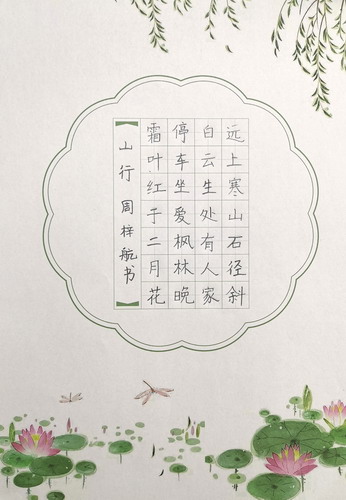 远上寒山石径斜
白云生处有人家
停车坐爱枫林晚
霜叶红于二月花
山行 周梓航书